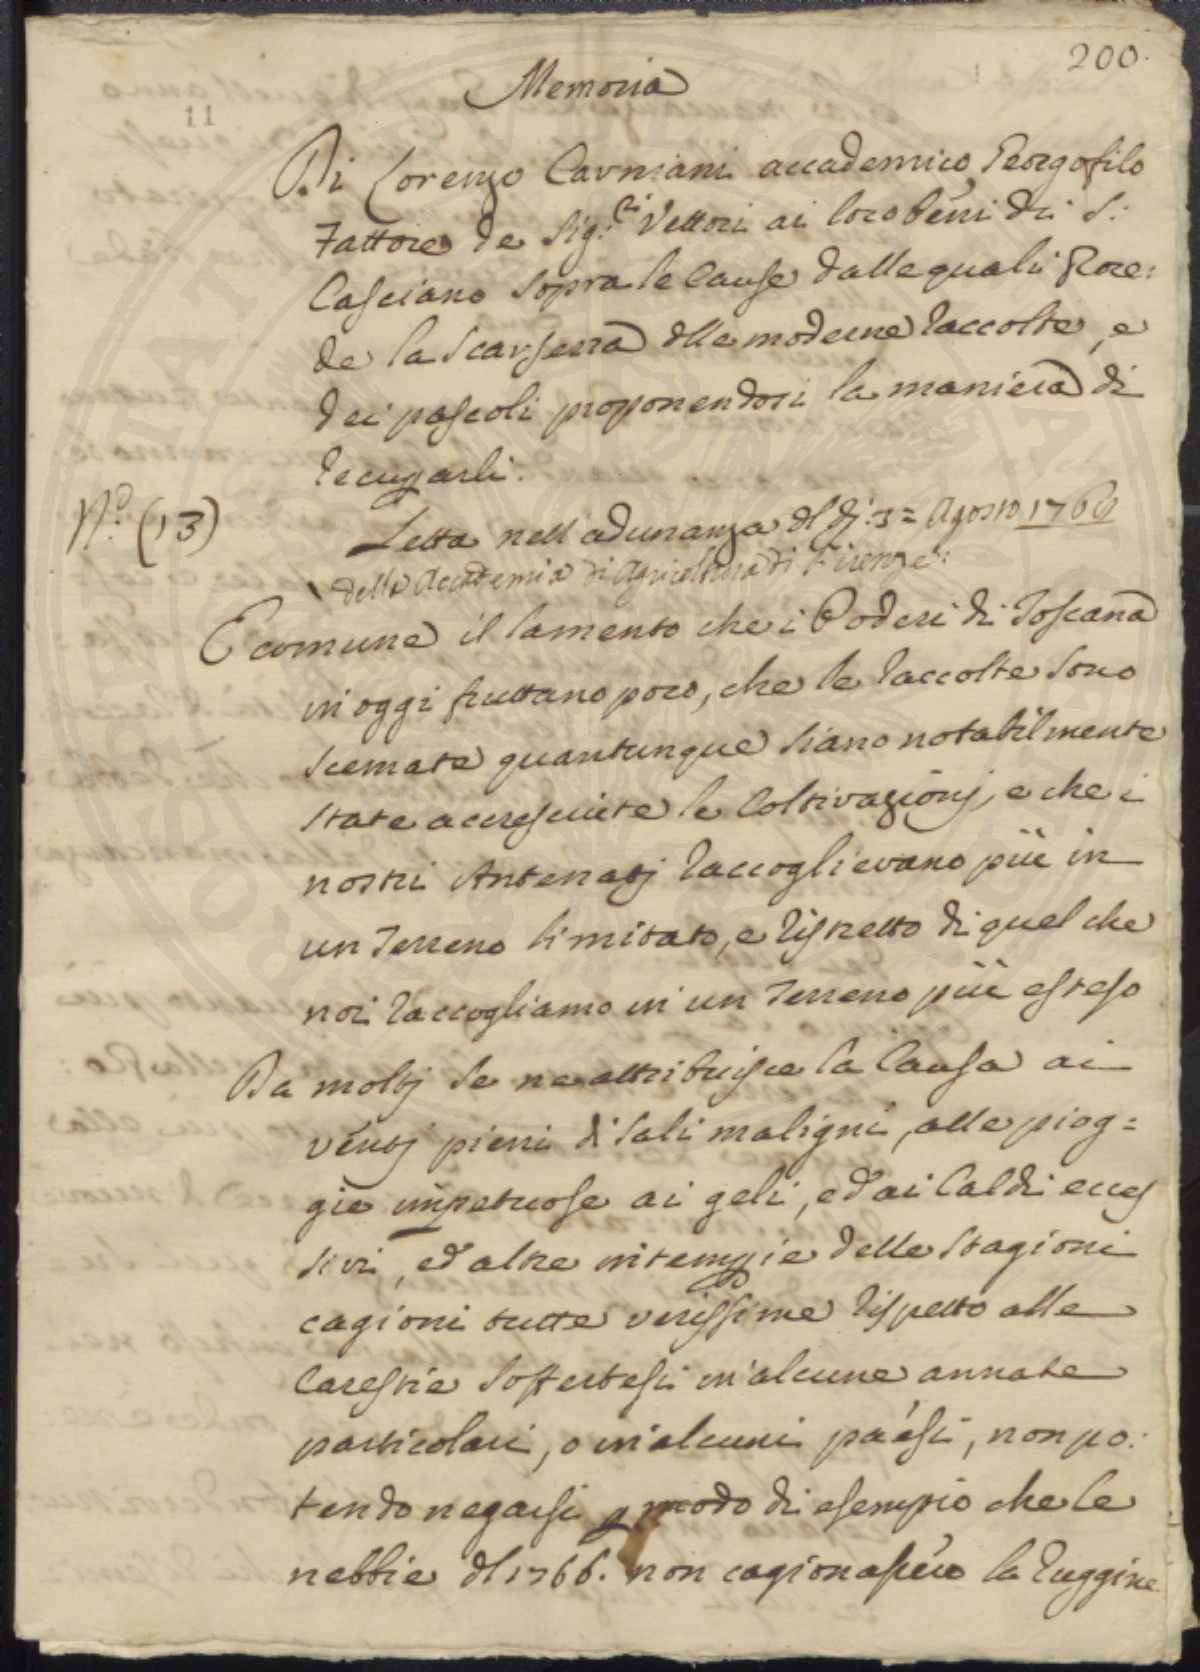 200.
11
Memoria
Di Lorenzo Carniani accademico Georgofilo
Fattore de Sig:ri Vettori ai loro beni di S:
Casciano sopra le Cause dalle quali Proce:
de la Scarsezza dlle moderne raccolte, e
dei pascoli proponendosi la maniera di
recuparli.
N.o (13)
Letta nell'adunanza dl dì: 3= Agosto 1768
della Accademia di Agricoltura di Firenze:
E comune il lamento che i Poderi di Toscana
in oggi fruttano poco, che le raccolte sono
scemate quantunque siano notabilmente
state accresciute le Coltivazionj, e che i
nostri Antenatj raccoglievano più in
un Terreno limitato, e ristretto di quel che
noi raccogliamo in un Terreno più esteso
Da moltj se ne attribuisce la Causa ai
ventj pieni di sali maligni, alle piog=
gie impetuose ai geli, ed ai Caldi ecces
sivi, ed altre intemperie delle Stagioni
cagioni tutte verissime rispetto alle
Carestie soffertesi in alcune annate
particolari, o in alcuni paesi, non po:
tendo negarsi p modo di esempio che le
nebbie dl 1766. non cagionassero la ruggine